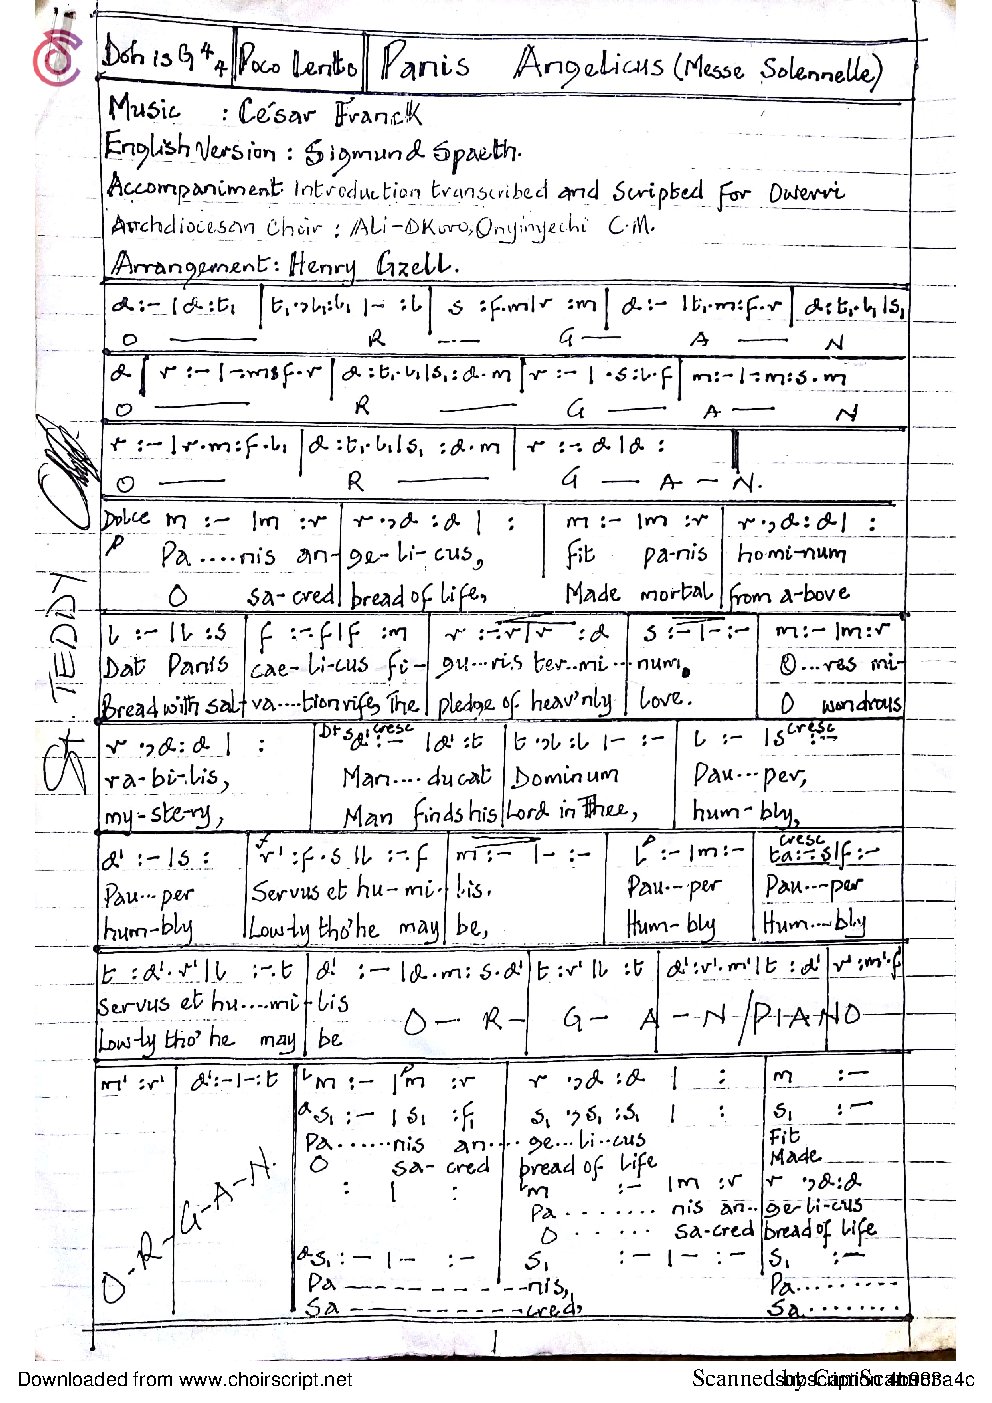 Doh is G 4/4 Poco Lento Panis Angelicus (Messe Solennelle)
Music : César Franck
English Version : Sigmund Spaeth.
Accompaniment Introduction transcribed and Scripted for Owerri
Archdiocesan Choir : Ali-Okoro, Onyinyechi C.M.
Arrangement: Henry Gzell.
d :- | d : t₁ | t₁ ., l₁ : l₁ | - : l | s : f.m | r : m | d :- | t₁.m : f.r | d : t₁.l₁ | s₁
O R G A N
d | r :- | - : m s f.r | d : t₁.l₁ | s₁ : d.m | r :- | .s : l.f | m :- | - : m : s.m
O R G A N
r :- | r.m : f.l₁ | d : t₁.l₁ | s₁ : d.m | r :-. d | d :
O R G A - N.
Dolce m :- | m : r | r ., d : d | : | m :- | m : r | r ., d : d | :
P Pa....nis an- ge-li-cus, fit pa-nis homi-num
O sa-cred bread of life, Made mortal from a-bove
l :- | l : s | f :-. f | f : m | r :-. r | r : d | s :- | - :- | m :- | m : r
Dat Panis cae-li-cus fi- gu...ris ter..mi- num. O...res mi-
Bread with sal-va....tion rife, The pledge of heav'nly love. O wondrous
r ., d : d | : | Dt s d¹ cresc :- | d¹ : t | t ., l : l | - :- | l :- | s cresc :-
ra-bi-lis, Man....ducat Dominum Pau...per,
my-ste-ry, Man finds his Lord in Thee, hum-bly,
d¹ :- | s : | f r¹ : f.s | l :-. f | m :- | - :- | p l :- | m :- | cresc ta :-. s | f :-
Pau...per Servus et hu-mi- lis. Pau..-per Pau...-per
hum-bly Low-ly tho' he may be, Hum-bly Hum....bly
t : d¹.r¹ | l :-. t | d¹ :- | d.m : s.d¹ | t : r¹ | l : t | d¹ : r¹.m¹ | t : d¹ | r¹ : m¹.f
Servus et hu....mi- lis
Low-ly tho' he may be O - R - G - A - N / PIANO
m¹ : r¹ | d¹ :- | - : t | m :- | p m : r | r ., d : d | : | m :-
s₁ :- | s₁ : f₁ | s₁ ., s₁ : s₁ | : | s₁ :-
Pa.......nis an.... ge...li-cus Fit
O sa-cred bread of life Made
O-R-G-A-N. : | : | m :- | m : r | r ., d : d
Pa........ nis an.. ge-li-cus
O ...... sa-cred bread of life
s₁ :- | - :- | s₁ :- | - :- | s₁ :-
Pa ---------- nis, Pa.........
Sa ---------- cred, Sa........
1
St. TEDDY
Downloaded from www.choirscript.net
Scanned by CamScanner